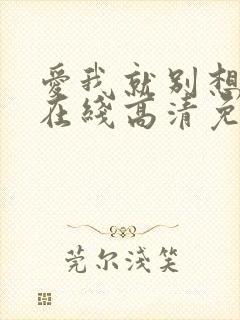 愛我就別想
在綫高清免
莞尔淺笑